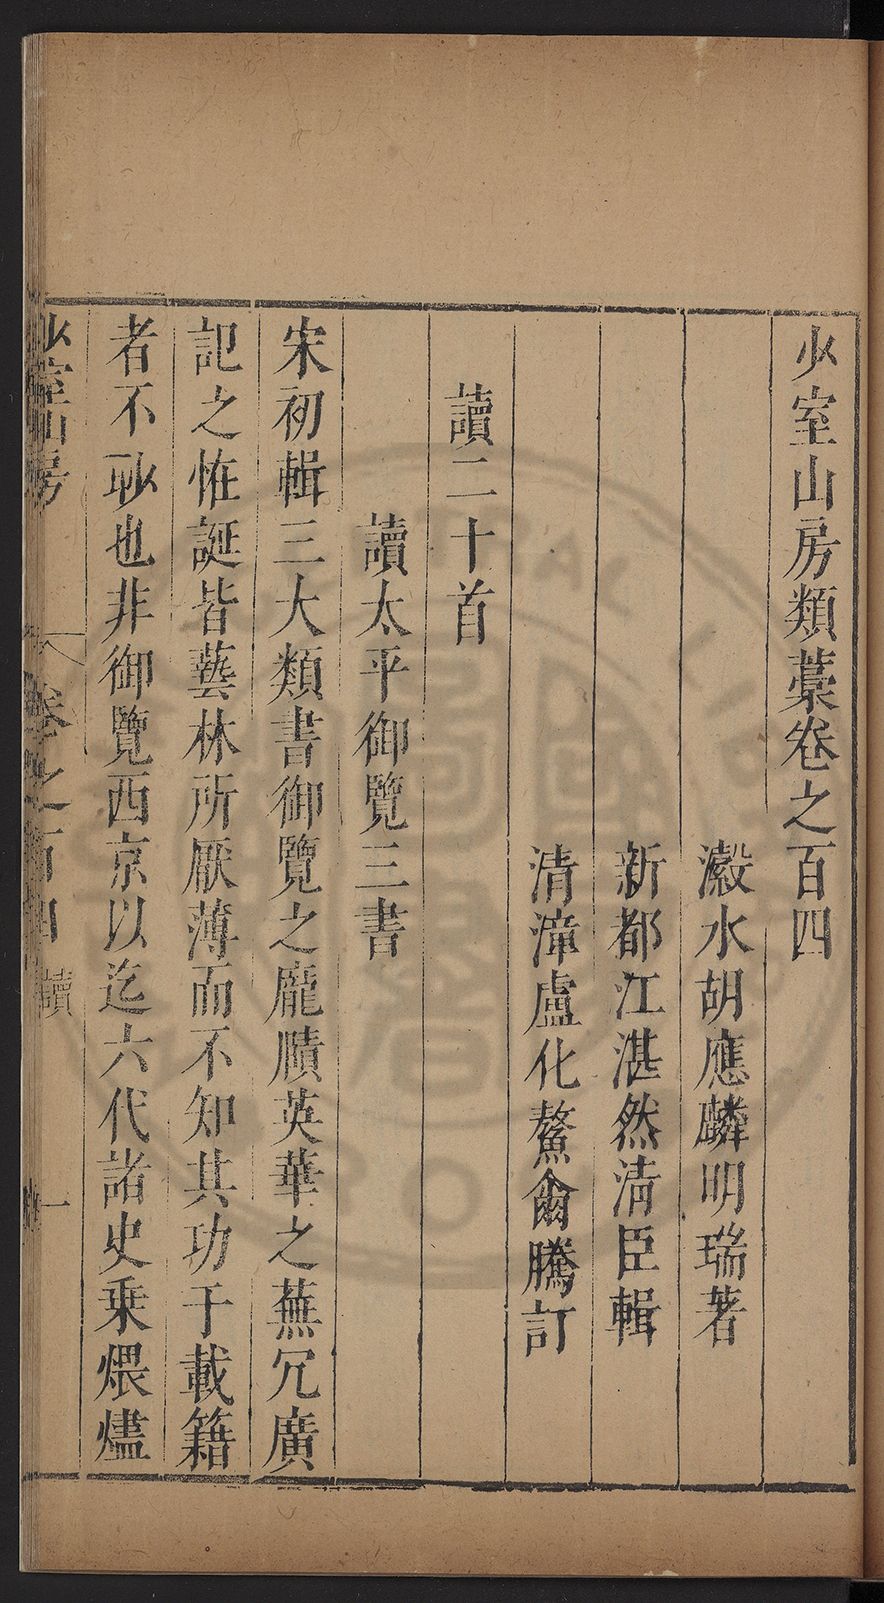 少室山房類藁卷之百四
瀫水胡應麟明瑞著
新都江湛然清臣輯
清漳盧化鰲爾騰訂
讀二十首
讀太平御覽三書
宋初輯三大類書御覽之龐賾英華之蕪冗廣
記之恠誕皆藝林所厭薄而不知其功于載籍
者不尠也非御覽西京以迄六代諸史乗煨燼
少室山房 卷之百四 讀 一